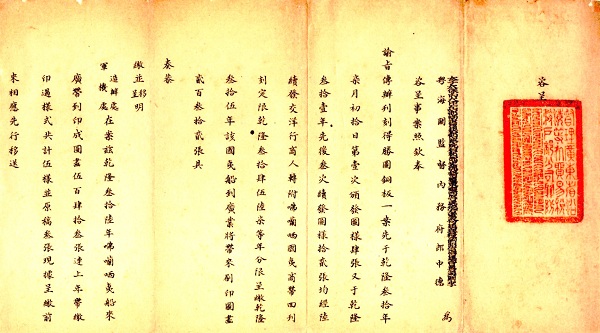 咨呈
粵海關監督內務府郎中德 為
咨呈事案照欽奉
諭旨傳辦刊刻得勝圖銅板一案先于乾隆叁拾年
柒月初拾日第壹次頒發圖樣肆張又于乾隆
叁拾壹年先後叁次續發圖樣拾貳張均經陸
續發交洋行商人轉附咈囒哂國夷商帶回刊
刻定限乾隆叁拾肆伍陸柒等年分限呈繳乾隆
叁拾伍年該國夷船到廣業將帶來刷印圖畫
貳百叁拾貳張具
奏
繳並移呈明
造辦處軍機處在案茲乾隆叁拾陸年咈囒哂夷船來
廣帶到印成圖畫伍百肆拾叁張連上年帶繳
印過樣式共計伍樣並原稿叁張現據呈繳前
來相應先行移送